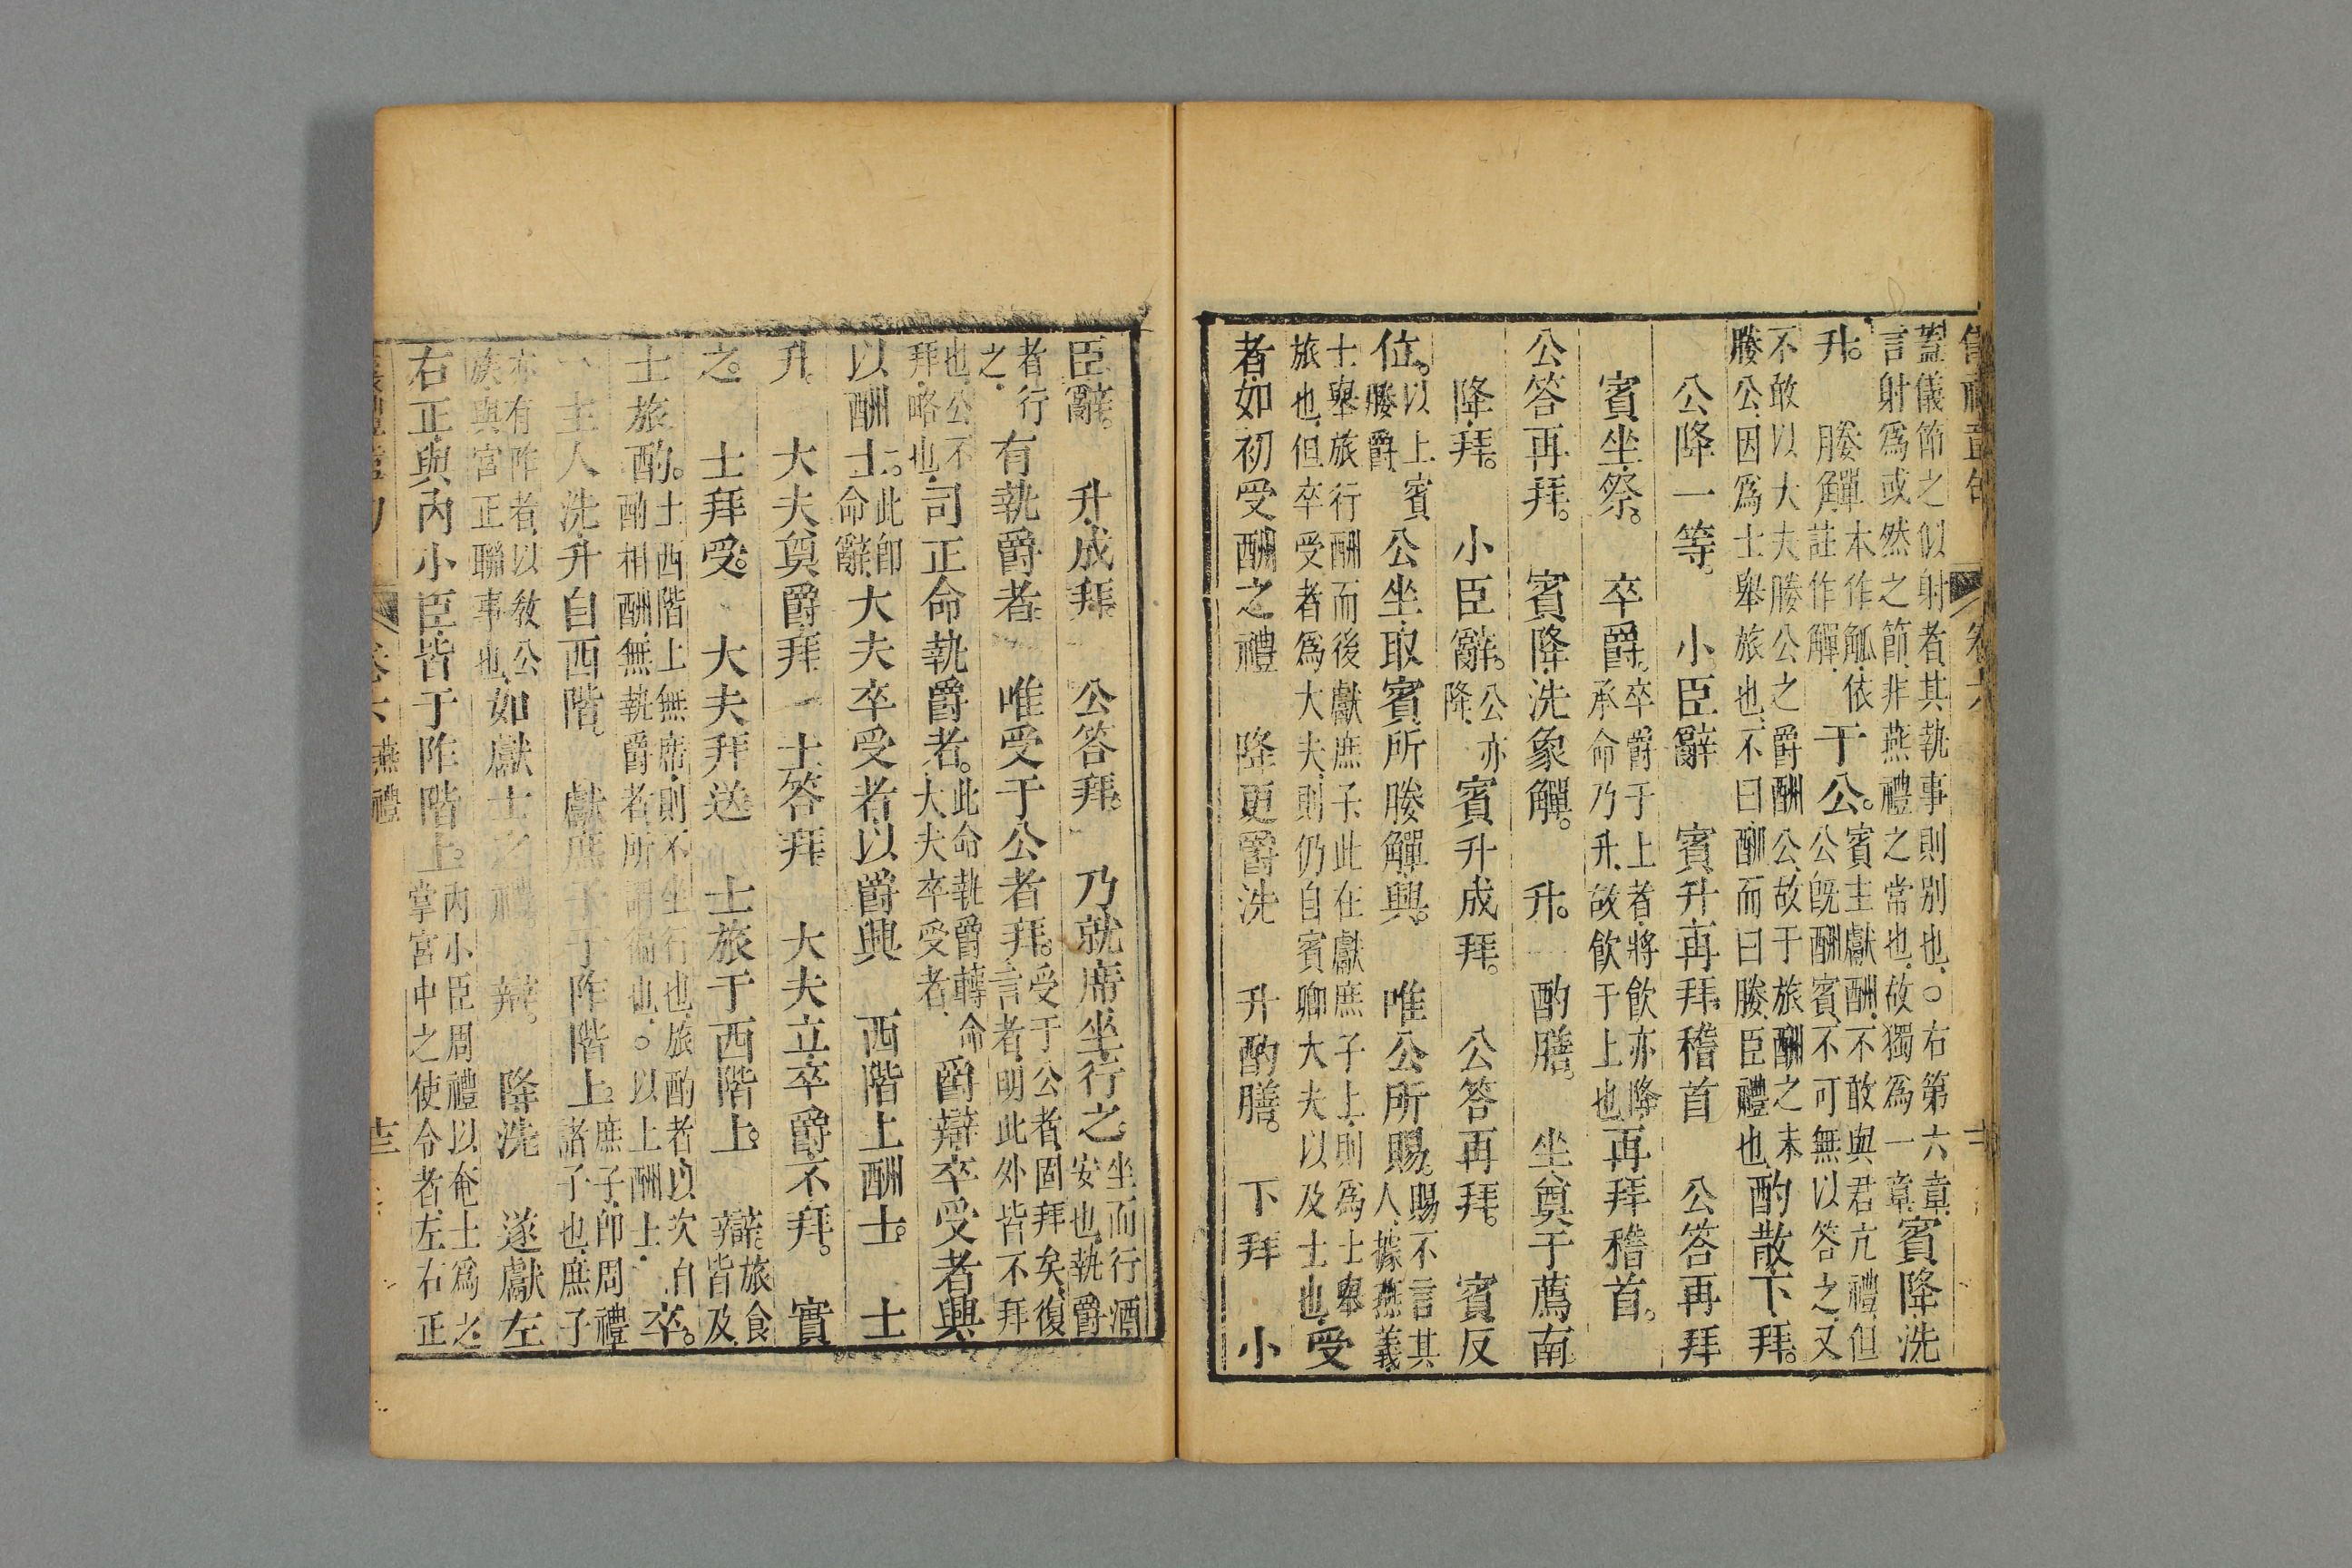 儀禮章句 卷六
蓋儀節之似射者其執事則別也○右第六章賓降洗
言射爲或然之節非燕禮之常也故獨爲一章
升媵觶本作觚依註作觶于公賓主獻酬不敢與君亢禮但公旣酬賓不可無以答之又
不敢以大夫媵公之爵酬公故于旅酬之末媵公因爲士舉旅也不曰酬而曰媵臣禮也酌散下拜
公降一等 小臣辭 賓升再拜稽首 公答再拜
賓坐祭 卒爵卒爵于上者將飲亦降承命乃升故飲于上也再拜稽首
公答再拜 賓降洗象觶 升 酌膳 坐奠于薦南
降拜 小臣辭公亦降賓升成拜 公答再拜 賓反
位以上賓媵爵公坐取賓所媵觶興 唯公所賜賜不言其人據燕義
士舉旅行酬而後獻庶子此在獻庶子上則爲士舉旅也但卒受者爲大夫則仍自賓卿大夫以及士也受
者如初受酬之禮 降更爵洗 升酌膳 下拜 小
臣辭 升成拜 公答拜 乃就席坐行之坐而行酒安也執爵
者行之有執爵者 唯受于公者拜受于公者固拜矣復言者明此外皆不拜
也公不拜略也司正命執爵者此命執爵轉命大夫卒受者爵辯卒受者興
以酬士此卽命辭大夫卒受者以爵興 西階上酬士 士
升 大夫奠爵拜 士答拜 大夫立卒爵不拜 實
之 士拜受 大夫拜送 士旅于西階上 辯旅食皆及
士旅酌士西階上無席則不坐行也旅酌者以次自酌相酬無執爵者所謂徧也○以上酬士卒
主人洗升自西階 獻庶子于阼階上庶子卽周禮諸子也庶子
亦有阼者以敎公族與宮正聯事也如獻士之禮 辯 降洗 遂獻左
右正與內小臣皆于阼階上內小臣周禮以奄士爲之掌宮中之使令者左右正
卷六 燕禮